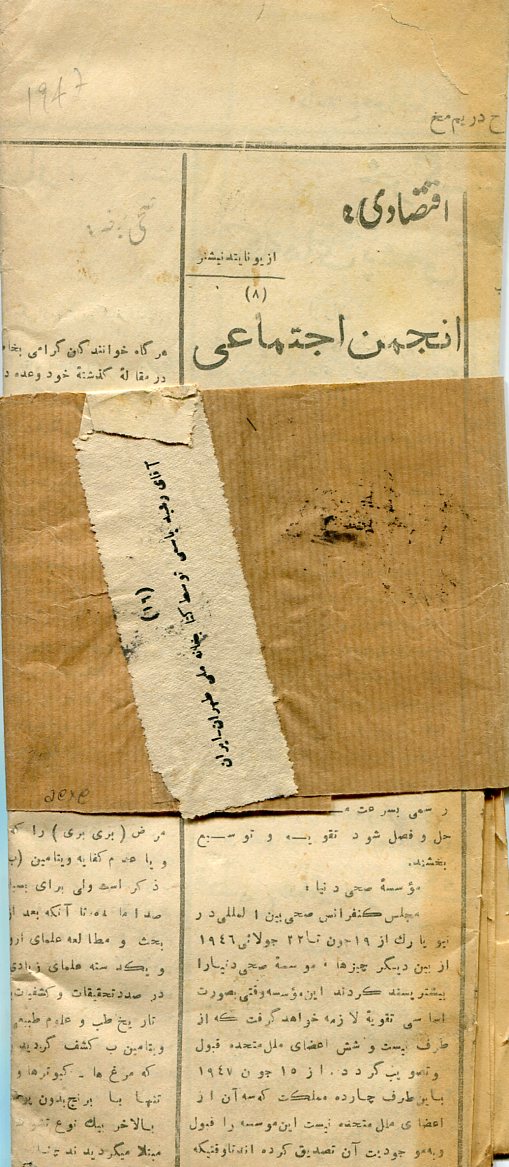 1947
ح در یم مخ
اقتصادی:
از یو نایتد نیشنز
(۸)
انجمن اجتماعی
هر گاه خوانندگان گرامی بخا
در مقالهٔ گذشتهٔ خود وعده د
آقای رشید یاسمی توسط کتابخانه ملی طهران-ایران
(۱٦)
رسمی بسرعت
حل و فصل شود تقویه و توسیع
بخشند.
مؤسسهٔ صحی دنیا:
مجلس کنفرانس صحی بین المللی در
نیویارك از ۱۹ جون تا ۲۲ جولائی ۱۹٤٦
از بین دیگر چیزها مؤسسهٔ صحی دنیا را
بیشتر پسند کردند این مؤسسه وقتی بصورت
اساسی تقویهٔ لازمه خواهد گرفت که از
طرف بیست و شش اعضای ملل متحده قبول
و تصویب گردد. از ۱٥ جون ۱۹٤۷
باینطرف چارده مملکت که سه آن از
اعضای ملل متحده نیست این موسسه را قبول
و به موجودیت آن تصدیق کرده اند تا وقتیکه
مرض (بری بری) را که
و یا عدم کفایه ویتامین (ب
ذکر است ولی برای بسیا
بحث و مطالعه علمای ارو
و یکدسته علمای زیادی
در صدد تحقیقات و کشفیات
تاریخ طب و علوم طبیعی
ویتامین ب کشف گردید
که مرغ ها - کبوترها و
تنها با برنج بدون پو
بالاخر بیك نوع تشو
مبتلا میگردید ند چنا